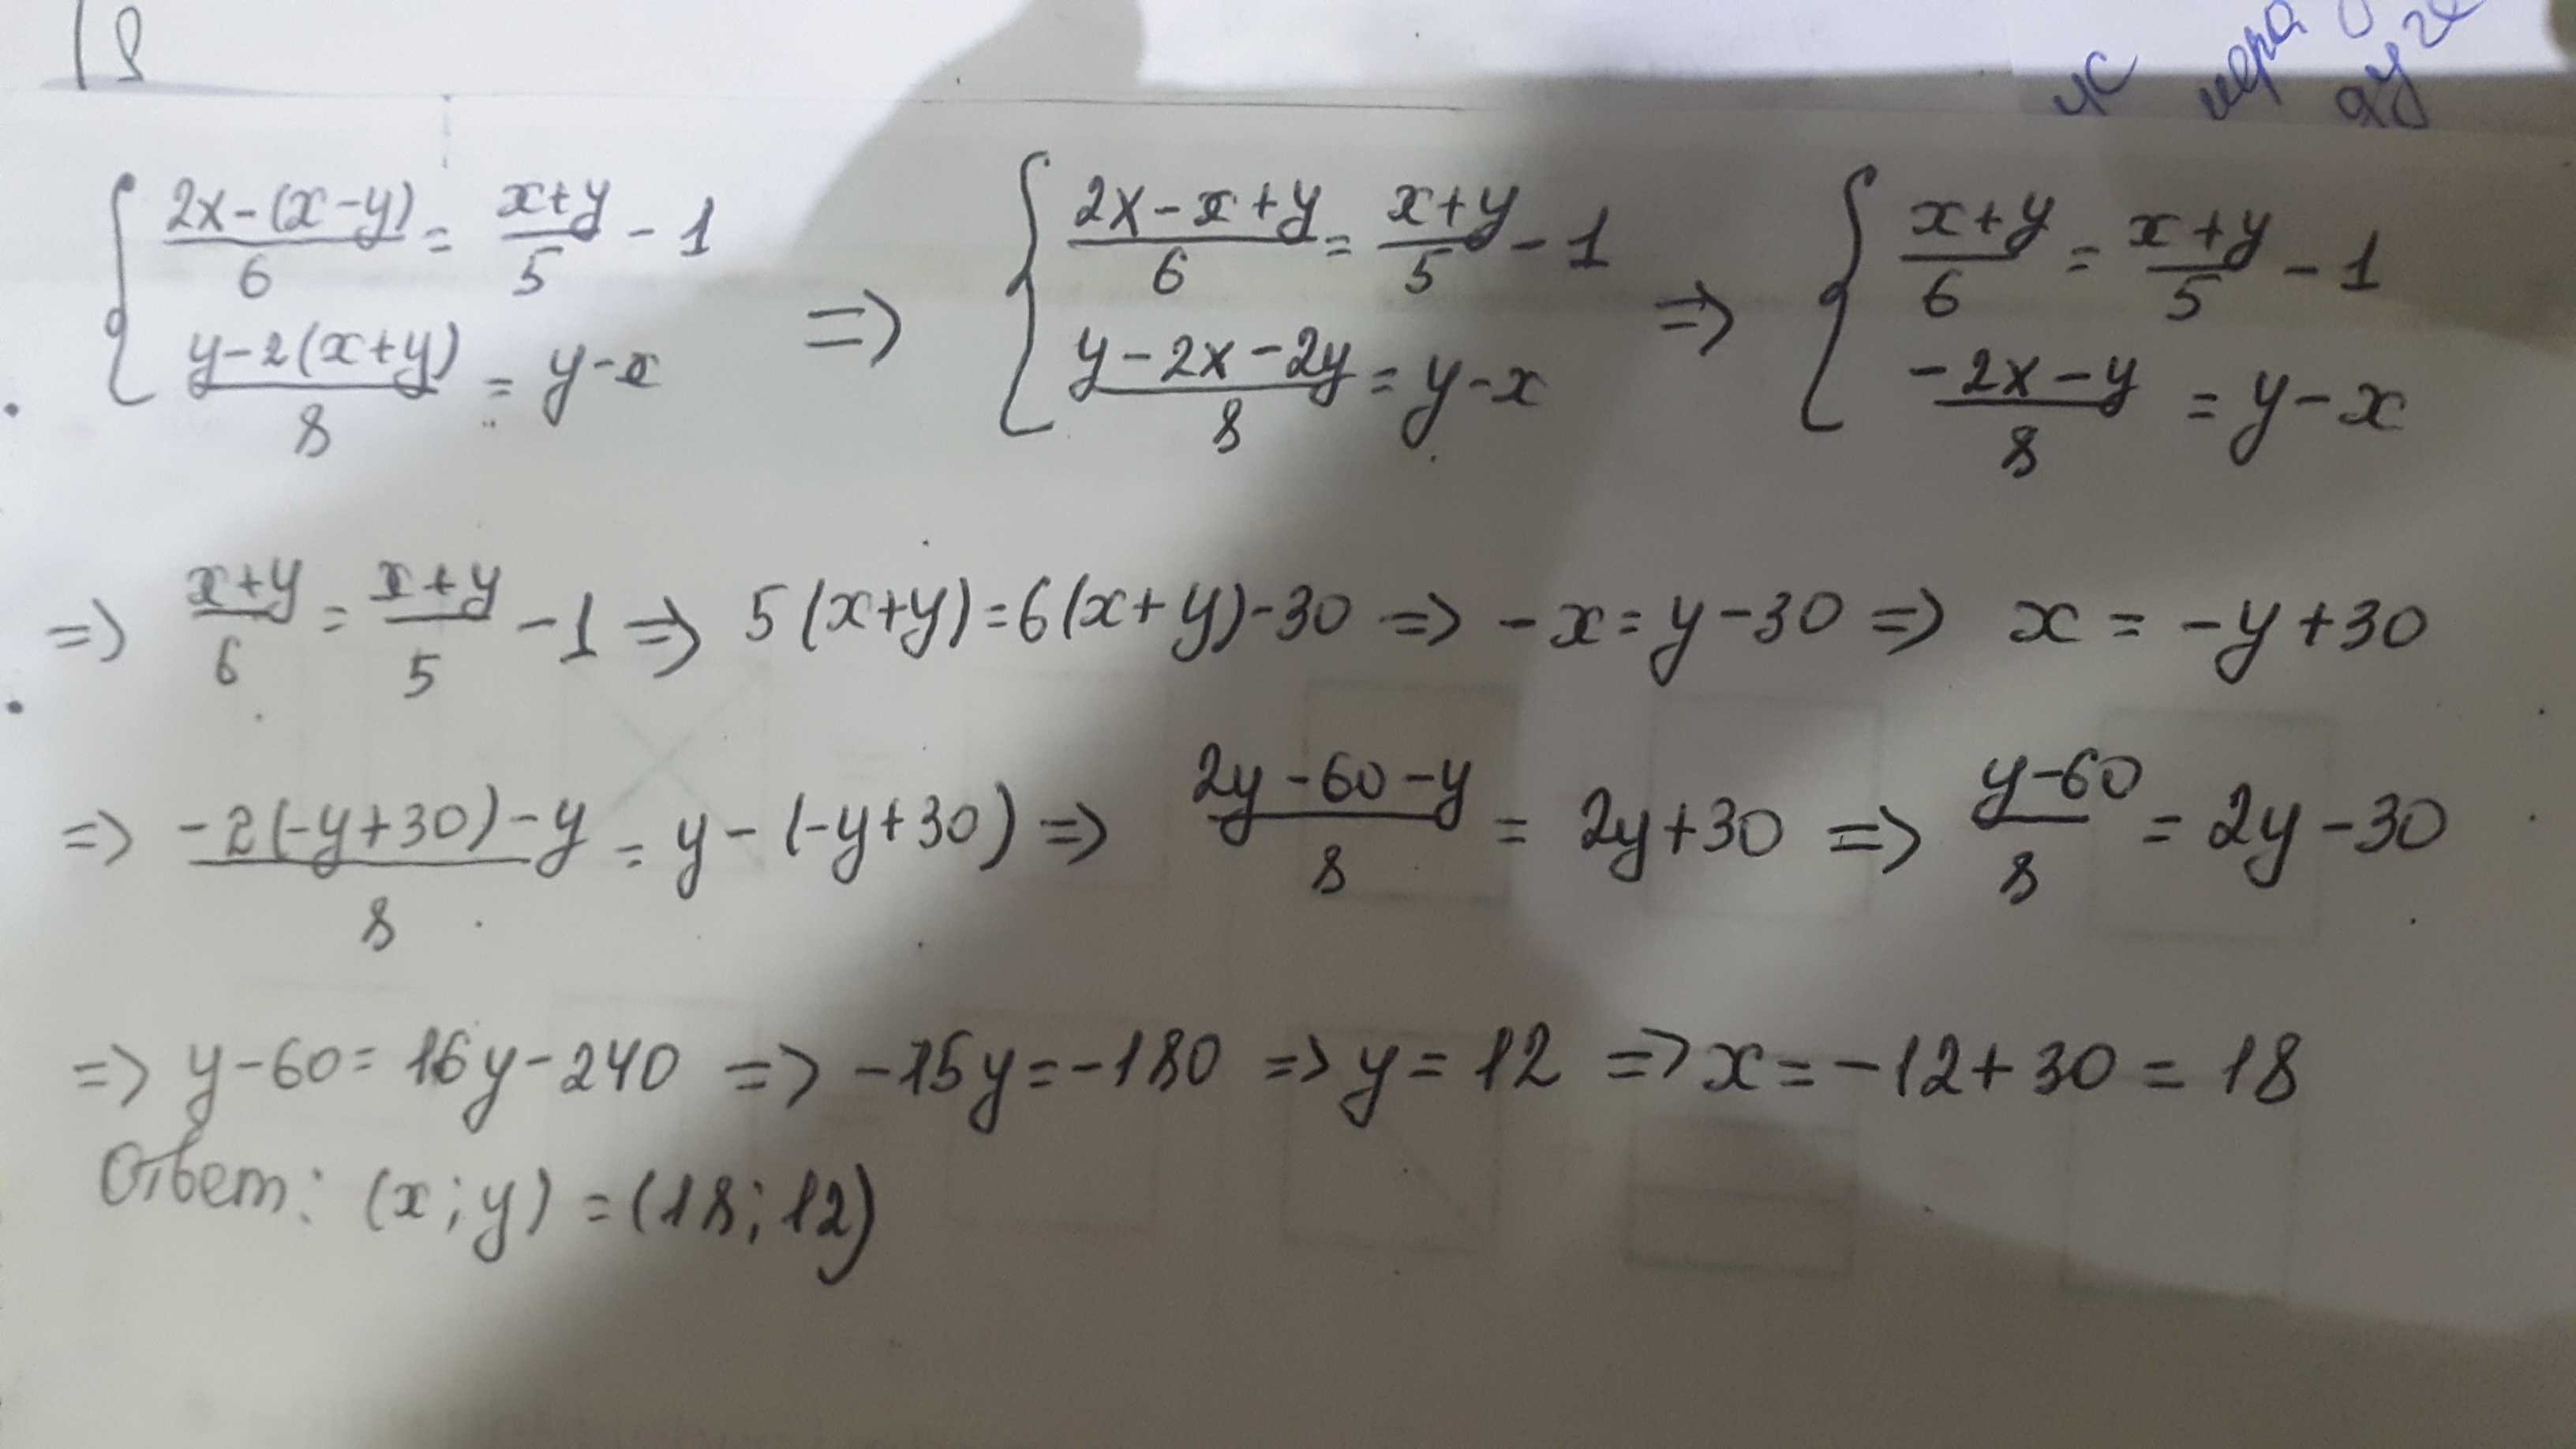 18
{ (2x-(x-y))/6 = (x+y)/5 - 1 ; (y-2(x+y))/8 = y-x => { (2x-x+y)/6 = (x+y)/5 - 1 ; (y-2x-2y)/8 = y-x => { (x+y)/6 = (x+y)/5 - 1 ; (-2x-y)/8 = y-x
=> (x+y)/6 = (x+y)/5 - 1 => 5(x+y)=6(x+y)-30 => -x=y-30 => x=-y+30
=> (-2(-y+30)-y)/8 = y-(-y+30) => (2y-60-y)/8 = 2y+30 => (y-60)/8 = 2y-30
=> y-60=16y-240 => -15y=-180 => y=12 => x=-12+30=18
Ответ: (x;y)=(18;12)